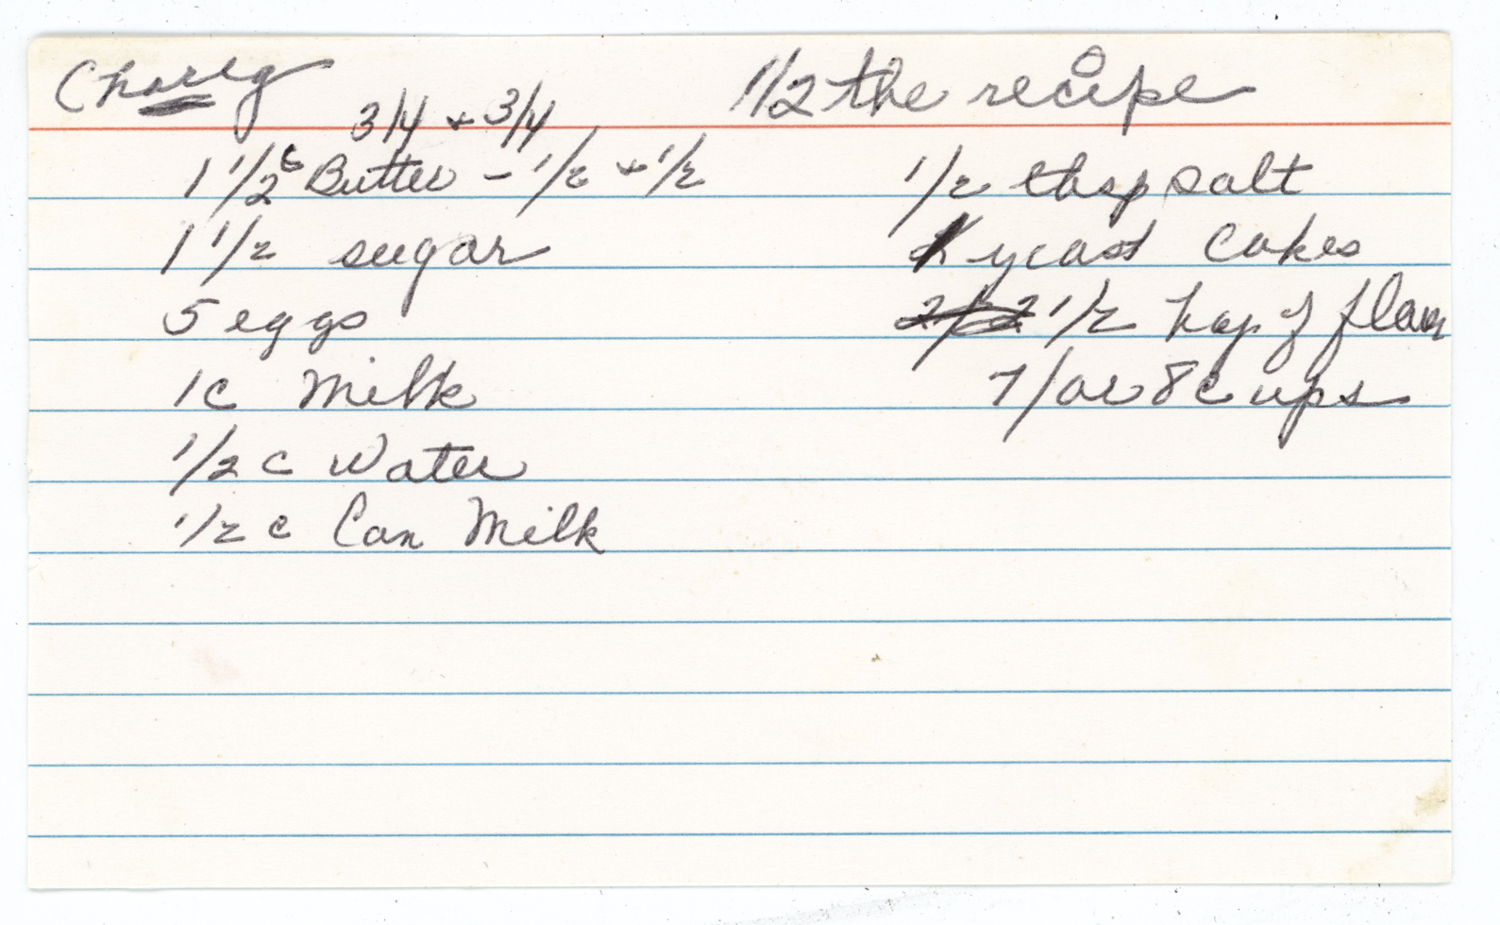 Choreg
1/2 the recipe
3/4 + 3/4
1 1/2 c Butter - 1/2 + 1/2
1 1/2 sugar
5 eggs
1c Milk
1/2 c Water
1/2 c Can Milk
1/2 tbsp salt
yeast Cakes
1/2 bag of flour
7/or 8 cups